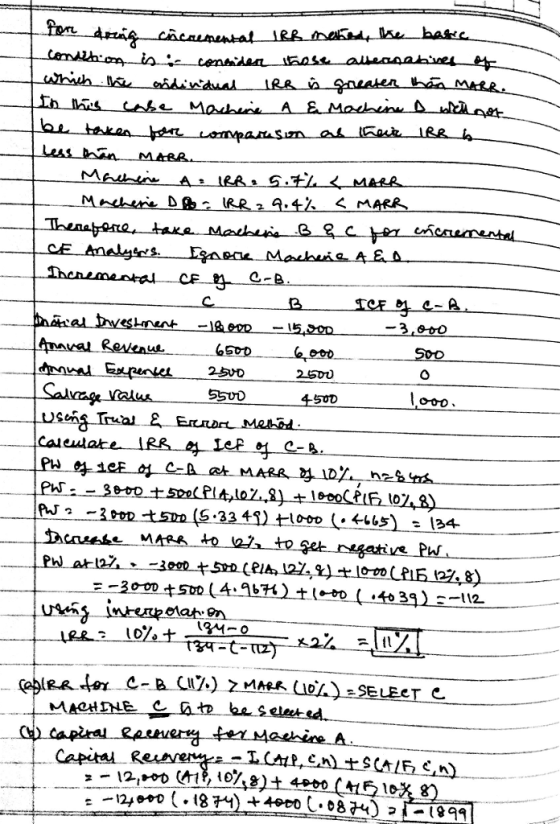 For doing incremental IRR method, the basic
condition is :- consider those alternatives of
which the individual IRR is greater than MARR.
In this case Machine A & Machine D will not
be taken for comparision as their IRR is
less than MARR.
Machine A = IRR = 5.7% < MARR
Machine D = IRR = 9.4% < MARR
Therefore, take Machine B & C for incremental
CF Analysis. Ignore Machine A & D.
Incremental CF of C-B.
C B ICF of C-B.
Initial Investment -18,000 -15,000 -3,000
Annual Revenue 6500 6,000 500
Annual Expenses 2500 2500 0
Salvage Value 5500 4500 1,000.
Using Trial & Error Method.
Calculate IRR of ICF of C-B.
PW of ICF of C-B at MARR of 10%, n=8 yrs
PW = -3000 + 500(P/A,10%,8) + 1000(P/F, 10%,8)
PW = -3000 + 500 (5.3349) + 1000 (.4665) = 134
Increase MARR to 12% to get negative PW.
PW at 12% = -3000 + 500 (P/A, 12%,8) + 1000 (P/F, 12%,8)
= -3000 + 500 (4.9676) + 1000 (.4039) = -112
Using interpolation
IRR = 10% + 134-0 / 134-(-112) × 2% = 11%
(a) IRR for C-B (11%) > MARR (10%) = SELECT C
MACHINE C is to be selected.
(b) Capital Recovery for Machine A.
Capital Recovery = -I (A/P, i, n) + S(A/F, i, n)
= -12,000 (A/P, 10%,8) + 4000 (A/F, 10%, 8)
= -12,000 (.1874) + 4000 (.0874) = -1899